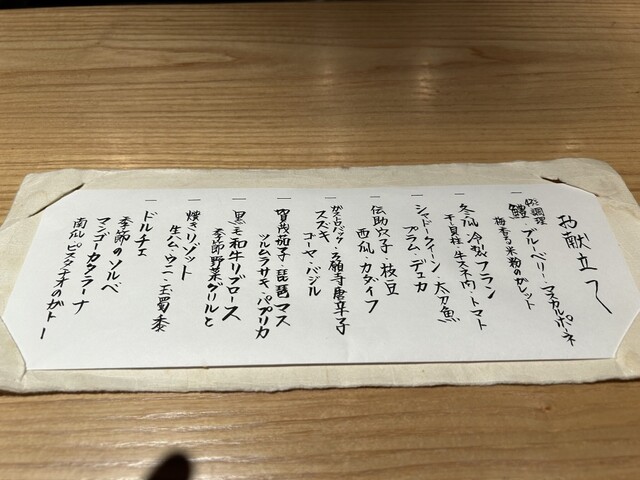 お献立て
一
鰻 ブルーベリー・マスカルポーネ
梅香る米粉のガレット
一
冬瓜 冷製フラン
干貝柱・牛スネ肉・トマト
一
シャドークイーン・太刀魚
プラム・デュカ
一
伝助穴子・枝豆
西瓜・カダイフ
一
万願寺唐辛子
スズキ
ゴーヤ・バジル
一
賀茂茄子・琵琶マス
ツルムラサキ・パプリカ
一
黒毛和牛リブロース
季節野菜グリルと
一
焼きリゾット
生ハム・ウニ・玉蜀黍
一
ドルチェ
季節のソルベ
マンゴーカタラーナ
南瓜・ピスタチオのガトー